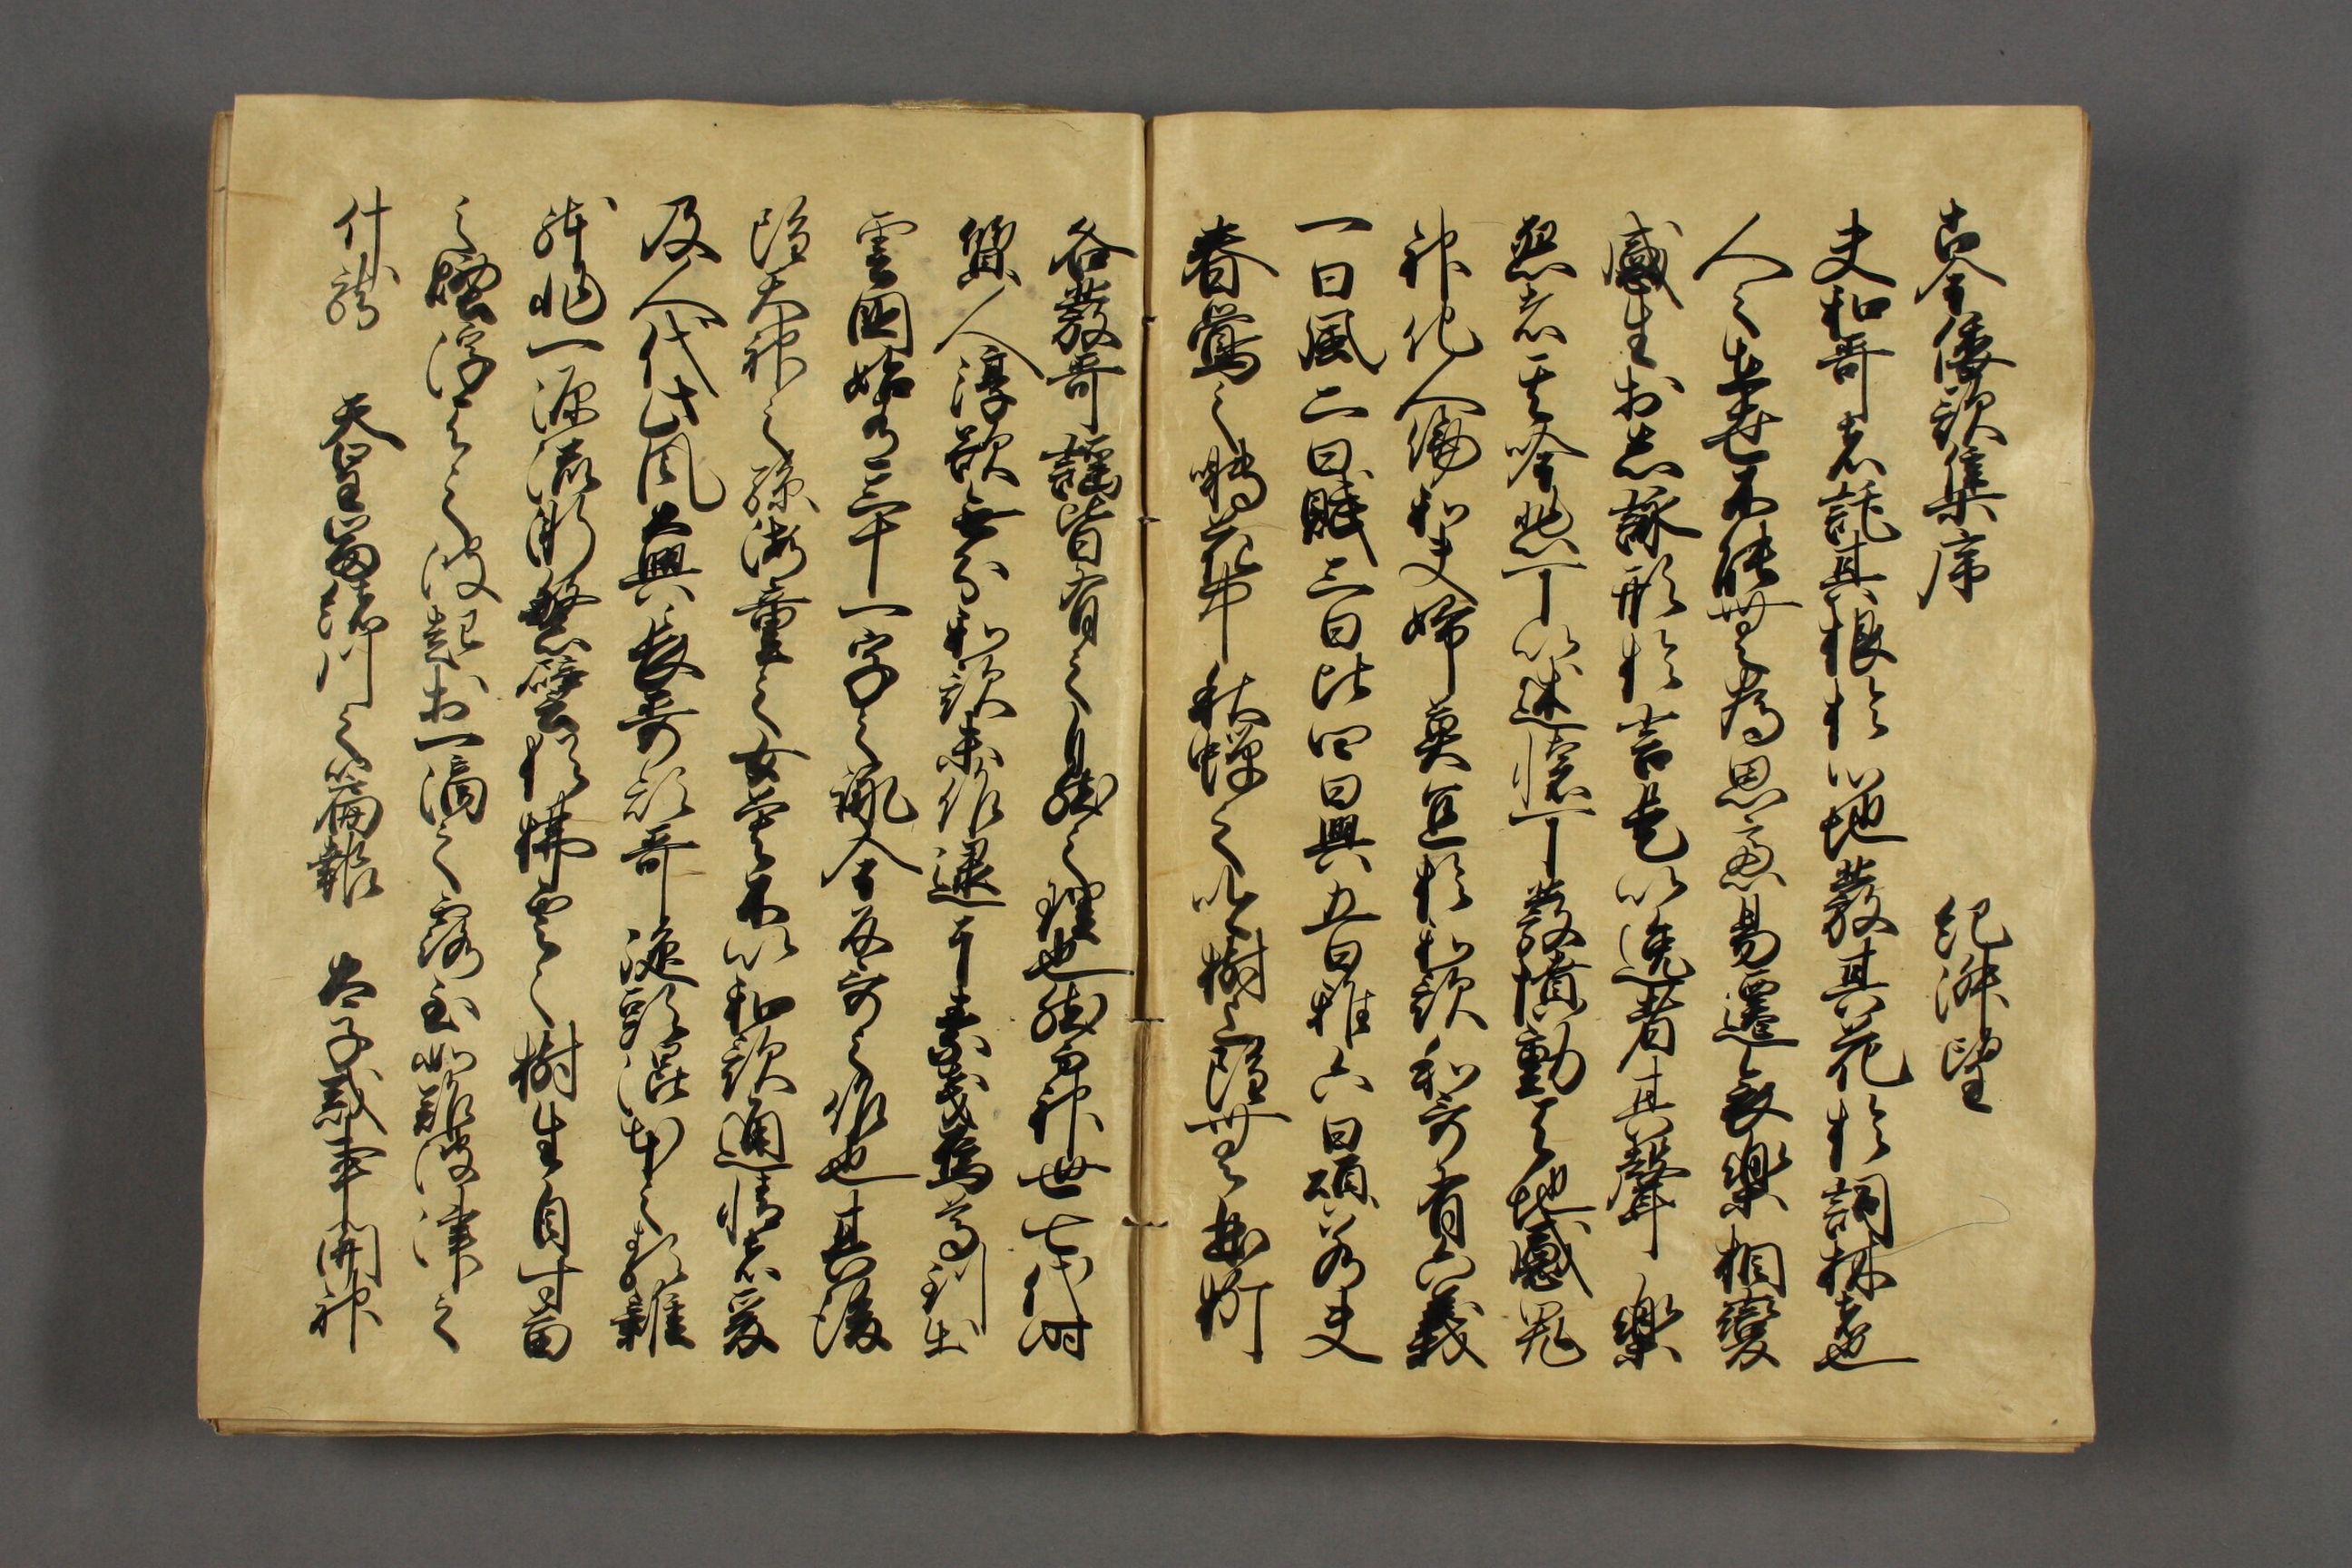 古今倭歌集序
紀淑望
夫和哥者託其根於心地發其花於詞林者也
人之在世不能無為思慮易遷哀樂相變
感生於志詠形於言是以逸者其聲樂
怨者其吟悲可以述懐可以發憤動天地感鬼
神化人倫和夫婦莫宜於和歌和哥有六義
一曰風二曰賦三曰比四曰興五曰雅六曰頌若夫
春鶯之囀花中秋蟬之吟樹上雖無曲折
各發哥謡皆有之自然之理也然而神世七代時
質人淳欲無分和歌未作逮于素戔烏尊到出
雲國始有三十一字之詠今反哥之作也其後
雖天神之孫海童之女莫不以和歌通情者爰
及人代此風大興長哥短哥旋頭混本之類雜
躰非一源流漸繁譬猶拂雲之樹生自寸苗
之煙浮天之波起於一滴之露至如難波津之
什献 天皇富緒川之篇報 太子或事関神